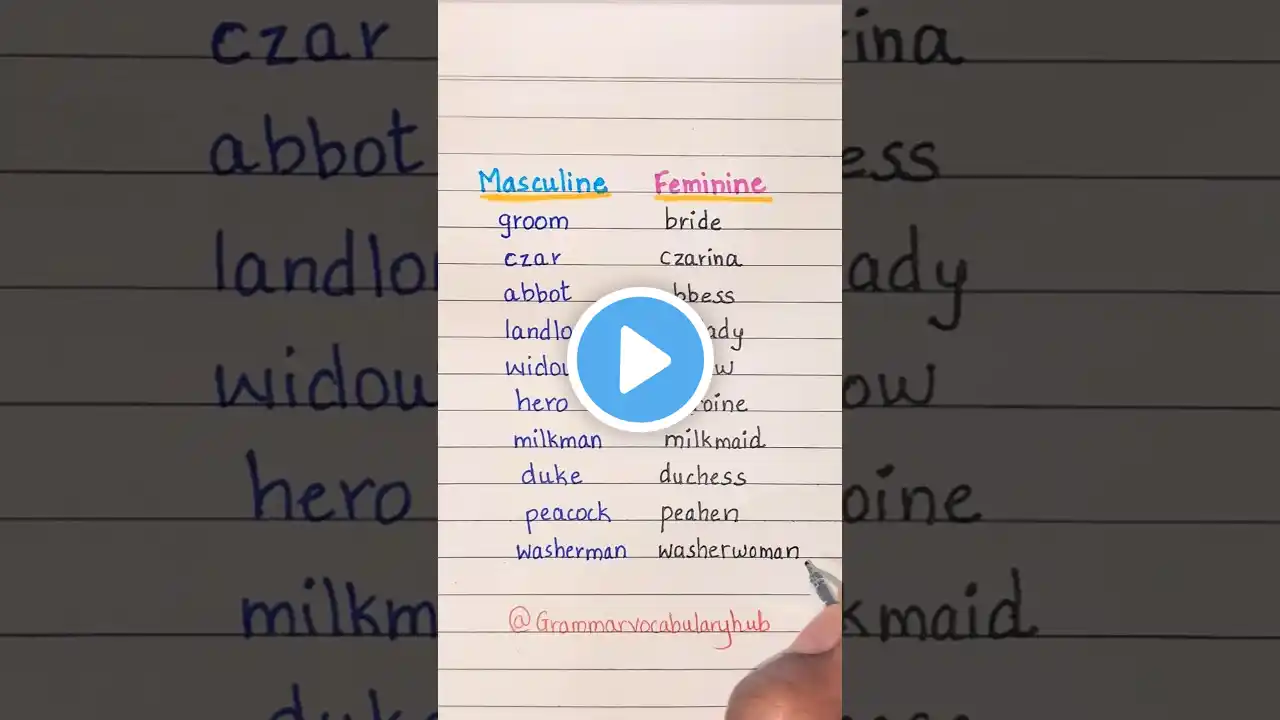 Masculine Feminine
groom bride
czar czarina
abbot bbess
landlo ady
widow w
hero oine
milkman milkmaid
duke duchess
peacock peahen
washerman washerwoman
@Grammarvocabularyhub